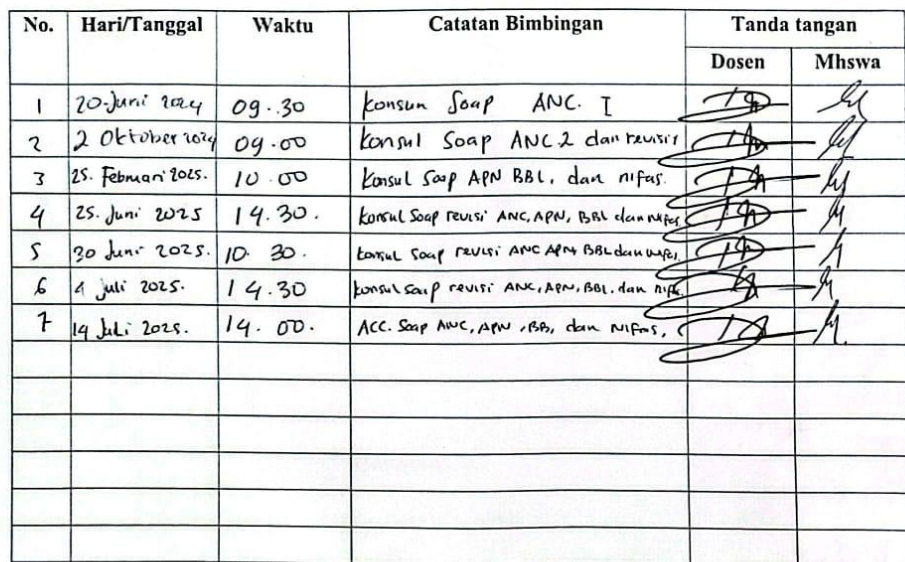 No. Hari/Tanggal Waktu Catatan Bimbingan Tanda tangan
Dosen Mhswa
1 20 Juni 2024 09.30 Konsun Soap ANC. I
2 2 Oktober 2024 09.00 Konsul Soap ANC 2 dan revisi
3 25. Februari 2025. 10.00 Konsul Soap APN BBL, dan nifas.
4 25. Juni 2025 14.30. Konsul Soap revisi ANC, APN, BBL dan Nifas
5 30 Juni 2025. 10.30. Konsul Soap revisi ANC APN, BBL dan Nifas,
6 4 Juli 2025. 14.30 Konsul Soap revisi ANC, APN, BBL, dan Nifas.
7 14 Juli 2025. 14.00. ACC. Soap ANC, APN, BB, dan Nifas,